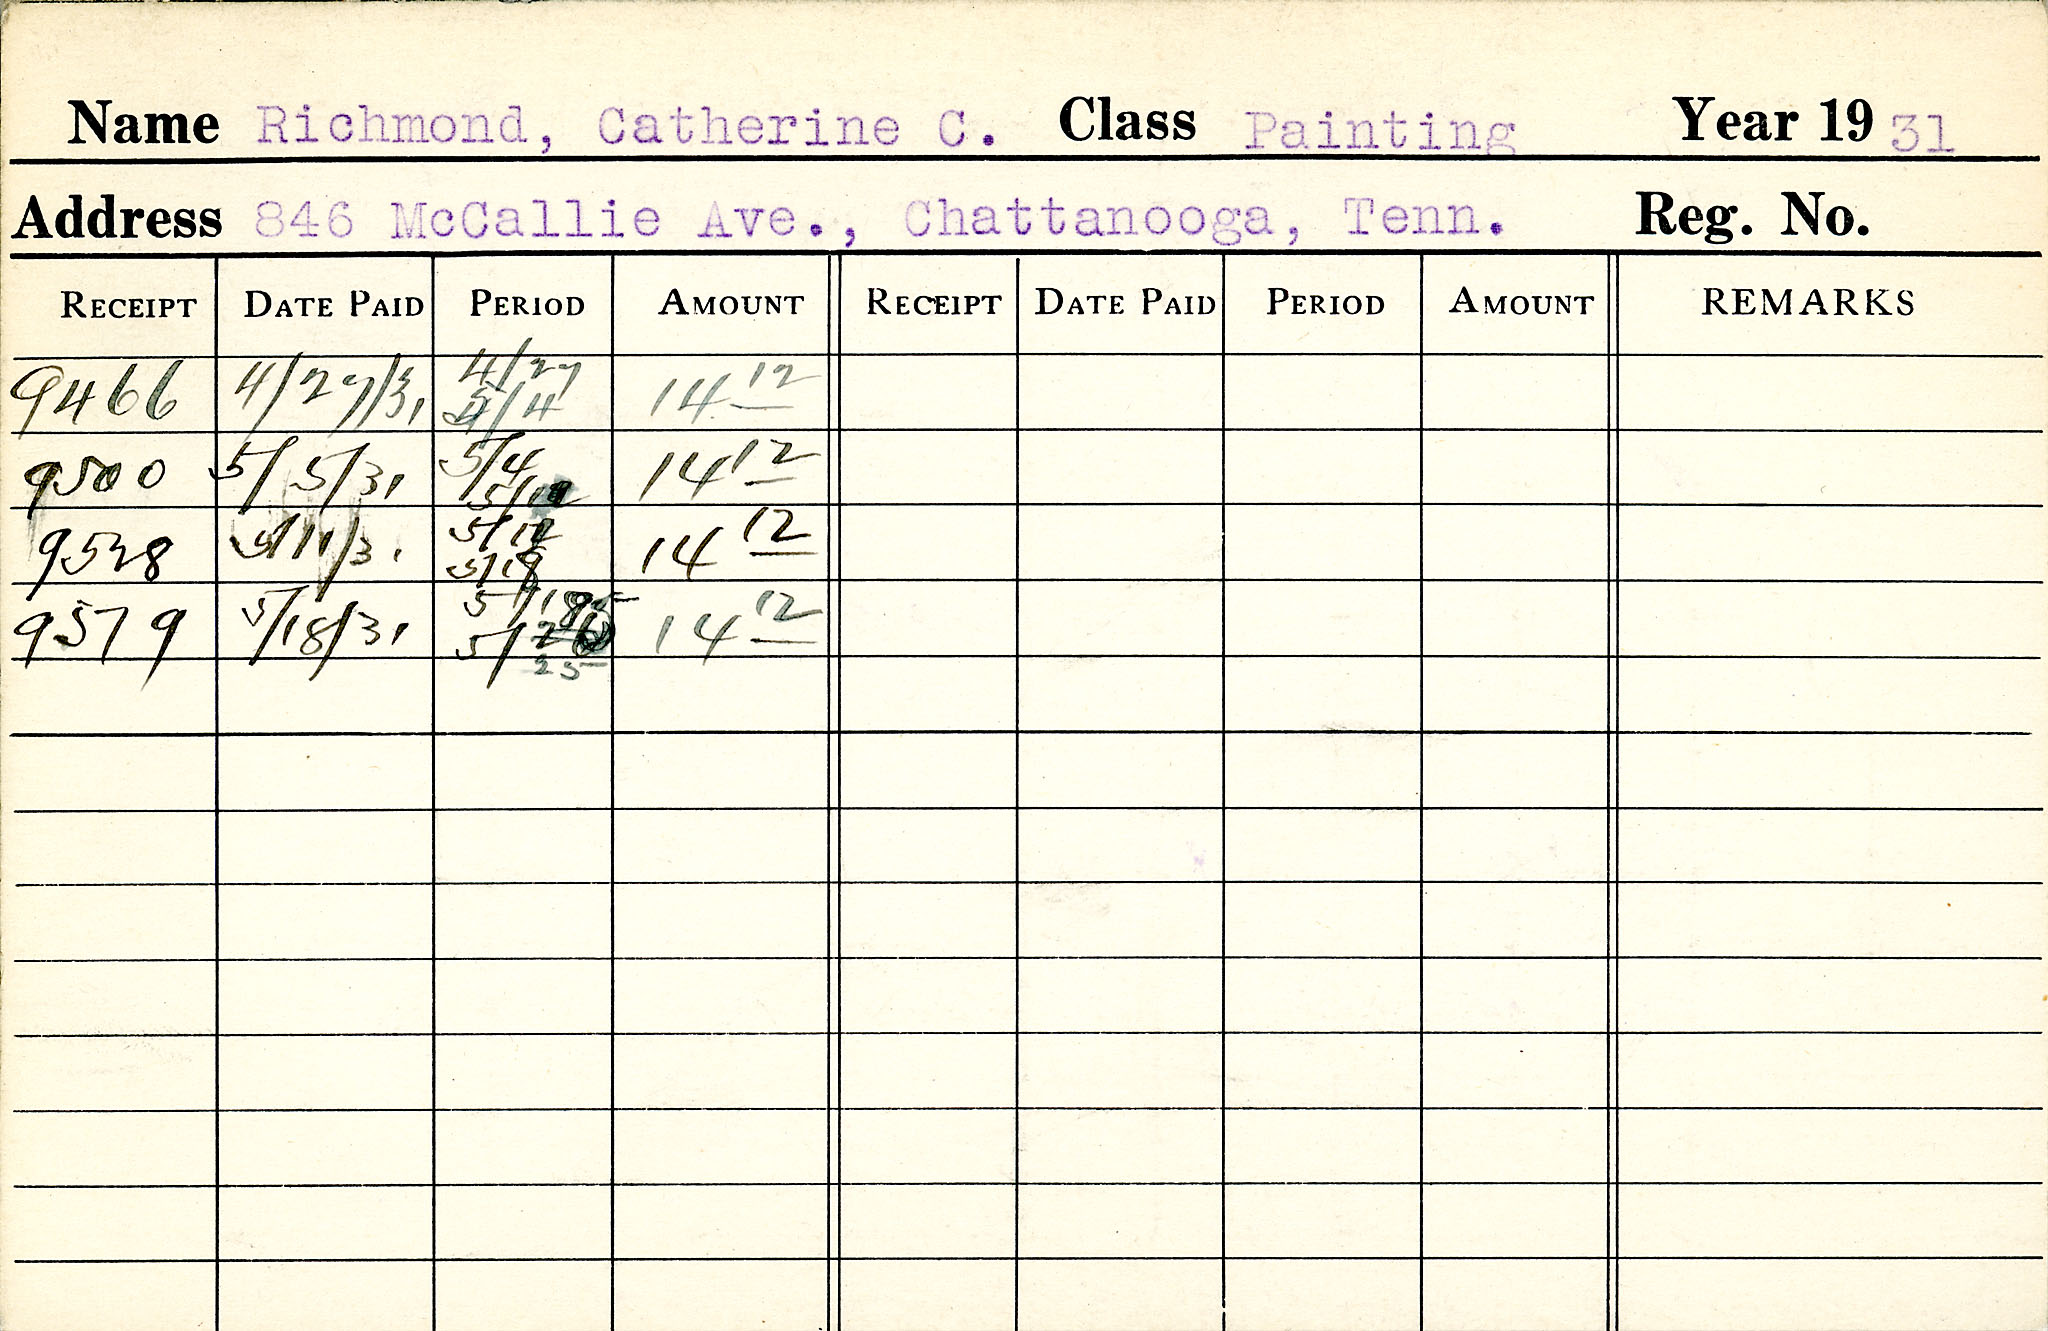 Name Richmond, Catherine C. Class Painting Year 19 31
Address 846 McCallie Ave., Chattanooga, Tenn. Reg. No.
RECEIPT DATE PAID PERIOD AMOUNT RECEIPT DATE PAID PERIOD AMOUNT REMARKS
9466 4/27/31 4/27 5/4 14 12
9500 5/5/31 5/4 14 12
9528 5/11/31 14 12
9579 5/18/31 5/18 5/ 25 14 12